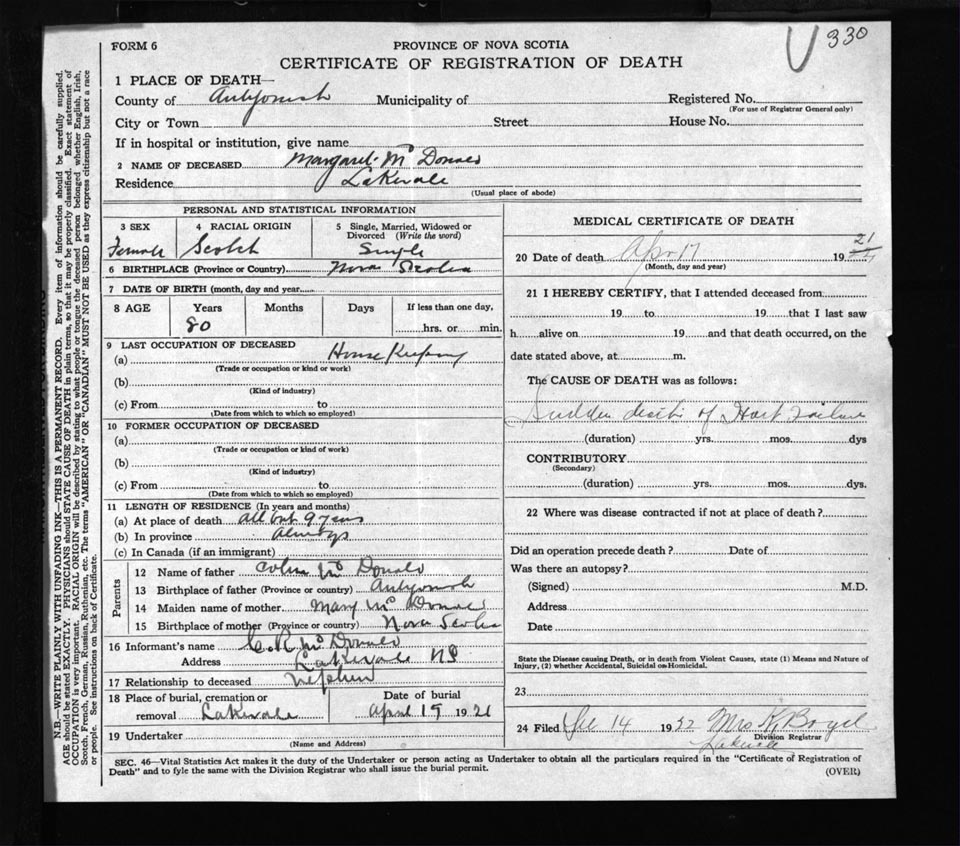 330
FORM 6
PROVINCE OF NOVA SCOTIA
CERTIFICATE OF REGISTRATION OF DEATH
1 PLACE OF DEATH—
County of Antigonish Municipality of Registered No.
(For use of Registrar General only)
City or Town Street House No.
If in hospital or institution, give name
2 NAME OF DECEASED Margaret Mc Donald
Residence Lakevale
(Usual place of abode)
PERSONAL AND STATISTICAL INFORMATION
3 SEX 4 RACIAL ORIGIN 5 Single, Married, Widowed or Divorced (Write the word)
Female Scotch Single
6 BIRTHPLACE (Province or Country) Nova Scotia
7 DATE OF BIRTH (month, day and year)
8 AGE Years Months Days If less than one day,
80 hrs. or min.
9 LAST OCCUPATION OF DECEASED
(a) House Keeping
(Trade or occupation or kind or work)
(b)
(Kind of industry)
(c) From to
(Date from which to which so employed)
10 FORMER OCCUPATION OF DECEASED
(a)
(Trade or occupation or kind of work)
(b)
(Kind of industry)
(c) From to
(Date from which to which so employed)
11 LENGTH OF RESIDENCE (In years and months)
(a) At place of death all but 9 years
(b) In province always
(c) In Canada (if an immigrant)
Parents
12 Name of father Colin Mc Donald
13 Birthplace of father (Province or country) Antigonish
14 Maiden name of mother Mary Mc Donald
15 Birthplace of mother (Province or country) Nova Scotia
16 Informant's name C. R. Mc Donald
Address Lakevale NS
17 Relationship to deceased Nephew
18 Place of burial, cremation or Date of burial
removal Lakevale April 19 1921
19 Undertaker
(Name and Address)
MEDICAL CERTIFICATE OF DEATH
20 Date of death Apr 17 19 21
(Month, day and year)
21 I HEREBY CERTIFY, that I attended deceased from
19 to 19 that I last saw
h alive on 19 and that death occurred, on the
date stated above, at m.
The CAUSE OF DEATH was as follows:
Sudden death of Hart Failure
(duration) yrs. mos. dys
CONTRIBUTORY
(Secondary)
(duration) yrs. mos. dys.
22 Where was disease contracted if not at place of death?
Did an operation precede death? Date of
Was there an autopsy?
(Signed) M.D.
Address
Date
State the Disease causing Death, or in death from Violent Causes, state (1) Means and Nature of
Injury, (2) whether Accidental, Suicidal or Homicidal.
23
24 Filed 14 1932 Mrs K Boyd
Division Registrar
Lakevale
SEC. 46—Vital Statistics Act makes it the duty of the Undertaker or person acting as Undertaker to obtain all the particulars required in the "Certificate of Registration of
Death" and to fyle the same with the Division Registrar who shall issue the burial permit.
(OVER)
N.B.—WRITE PLAINLY WITH UNFADING INK—THIS IS A PERMANENT RECORD. Every item of information should be carefully supplied.
AGE should be stated EXACTLY. PHYSICIANS should STATE CAUSE OF DEATH in plain terms, so that it may be properly classified. Exact statement of
OCCUPATION is very important. RACIAL ORIGIN will be described by stating to what people or tongue the deceased person belonged whether English, Irish,
Scotch, French, German, Russian, Ruthenian, etc. The terms "AMERICAN" OR "CANADIAN" MUST NOT BE USED as they express citizenship but not a race
or people. See instructions on back of Certificate.